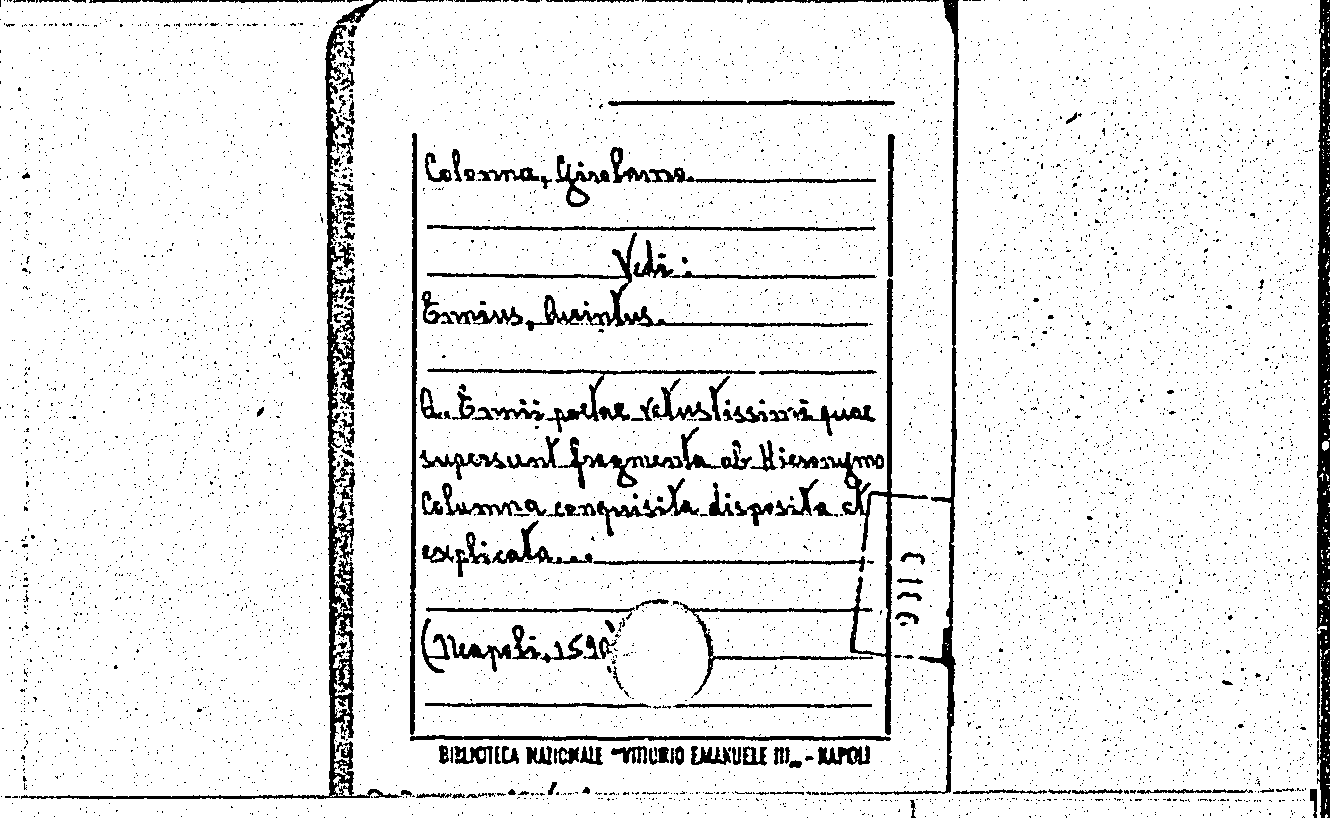 Colonna, Girolamo.
Vedi:
Ennius, Quintus.
Q. Ennii poetae vetustissimi quae
supersunt fragmenta ab Hieronymo
Columna conquisita disposita et
explicata...
(Neapoli, 1590)
BIBLIOTECA NAZIONALE "VITTORIO EMANUELE III" - NAPOLI